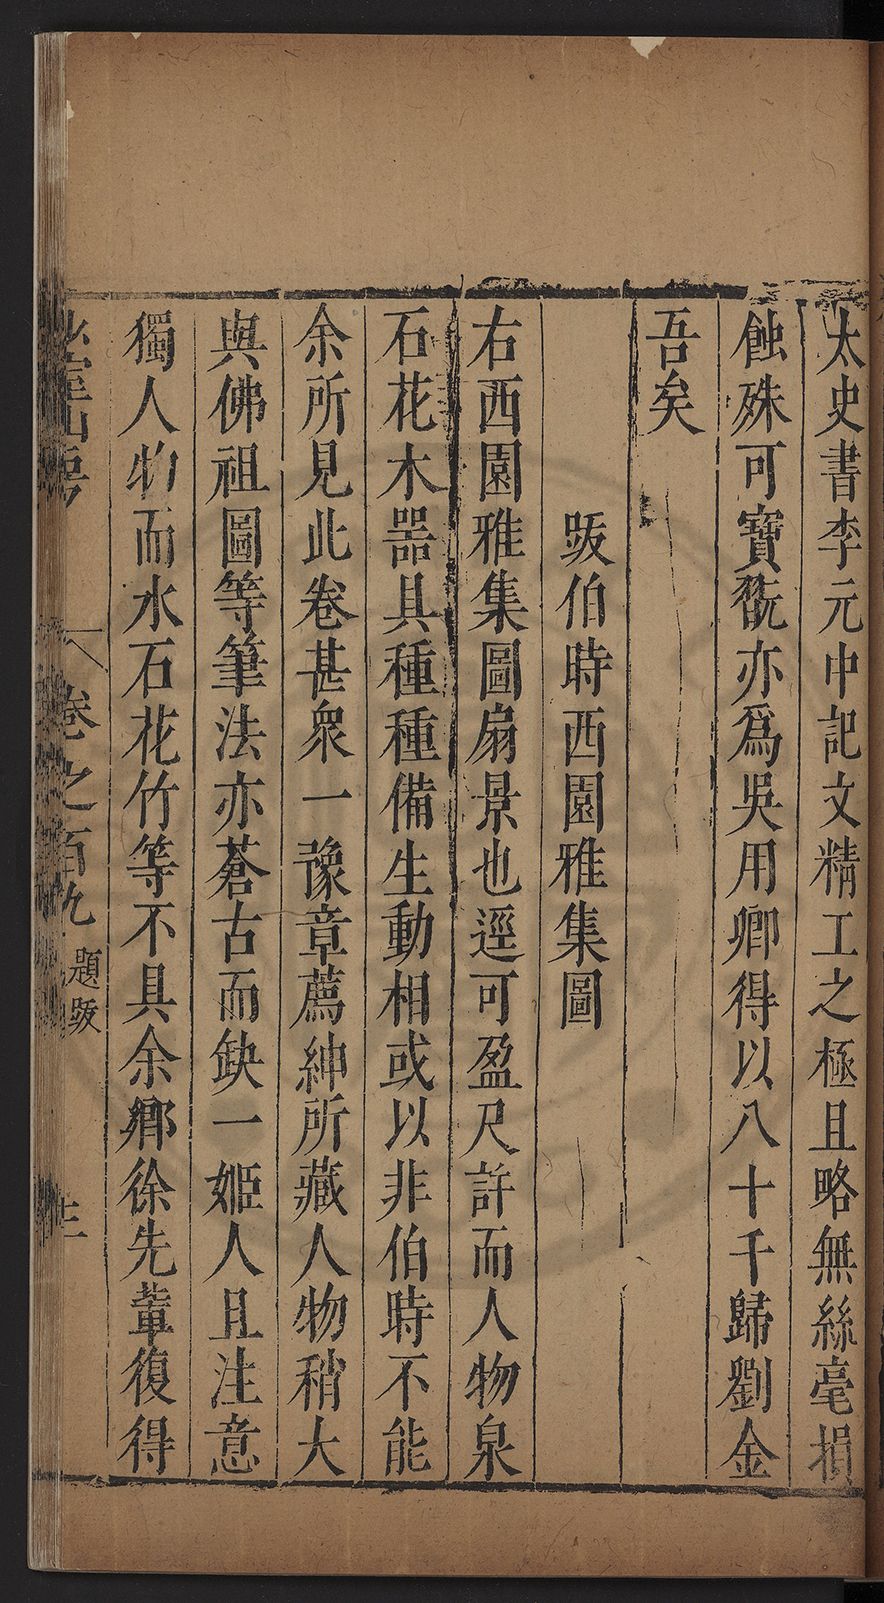 太史書李元中記文精工之極且略無絲毫損
蝕殊可寶翫亦爲吳用卿得以八十千歸劉金
吾矣
跋伯時西園雅集圖
右西園雅集圖扇景也逕可盈尺許而人物泉
石花木器具種種備生動相或以非伯時不能
余所見此卷甚衆一豫章薦紳所藏人物稍大
與佛祖圖等筆法亦蒼古而缺一姬人且注意
獨人物而水石花竹等不具余鄉徐先輩復得
卷之百九 題跋